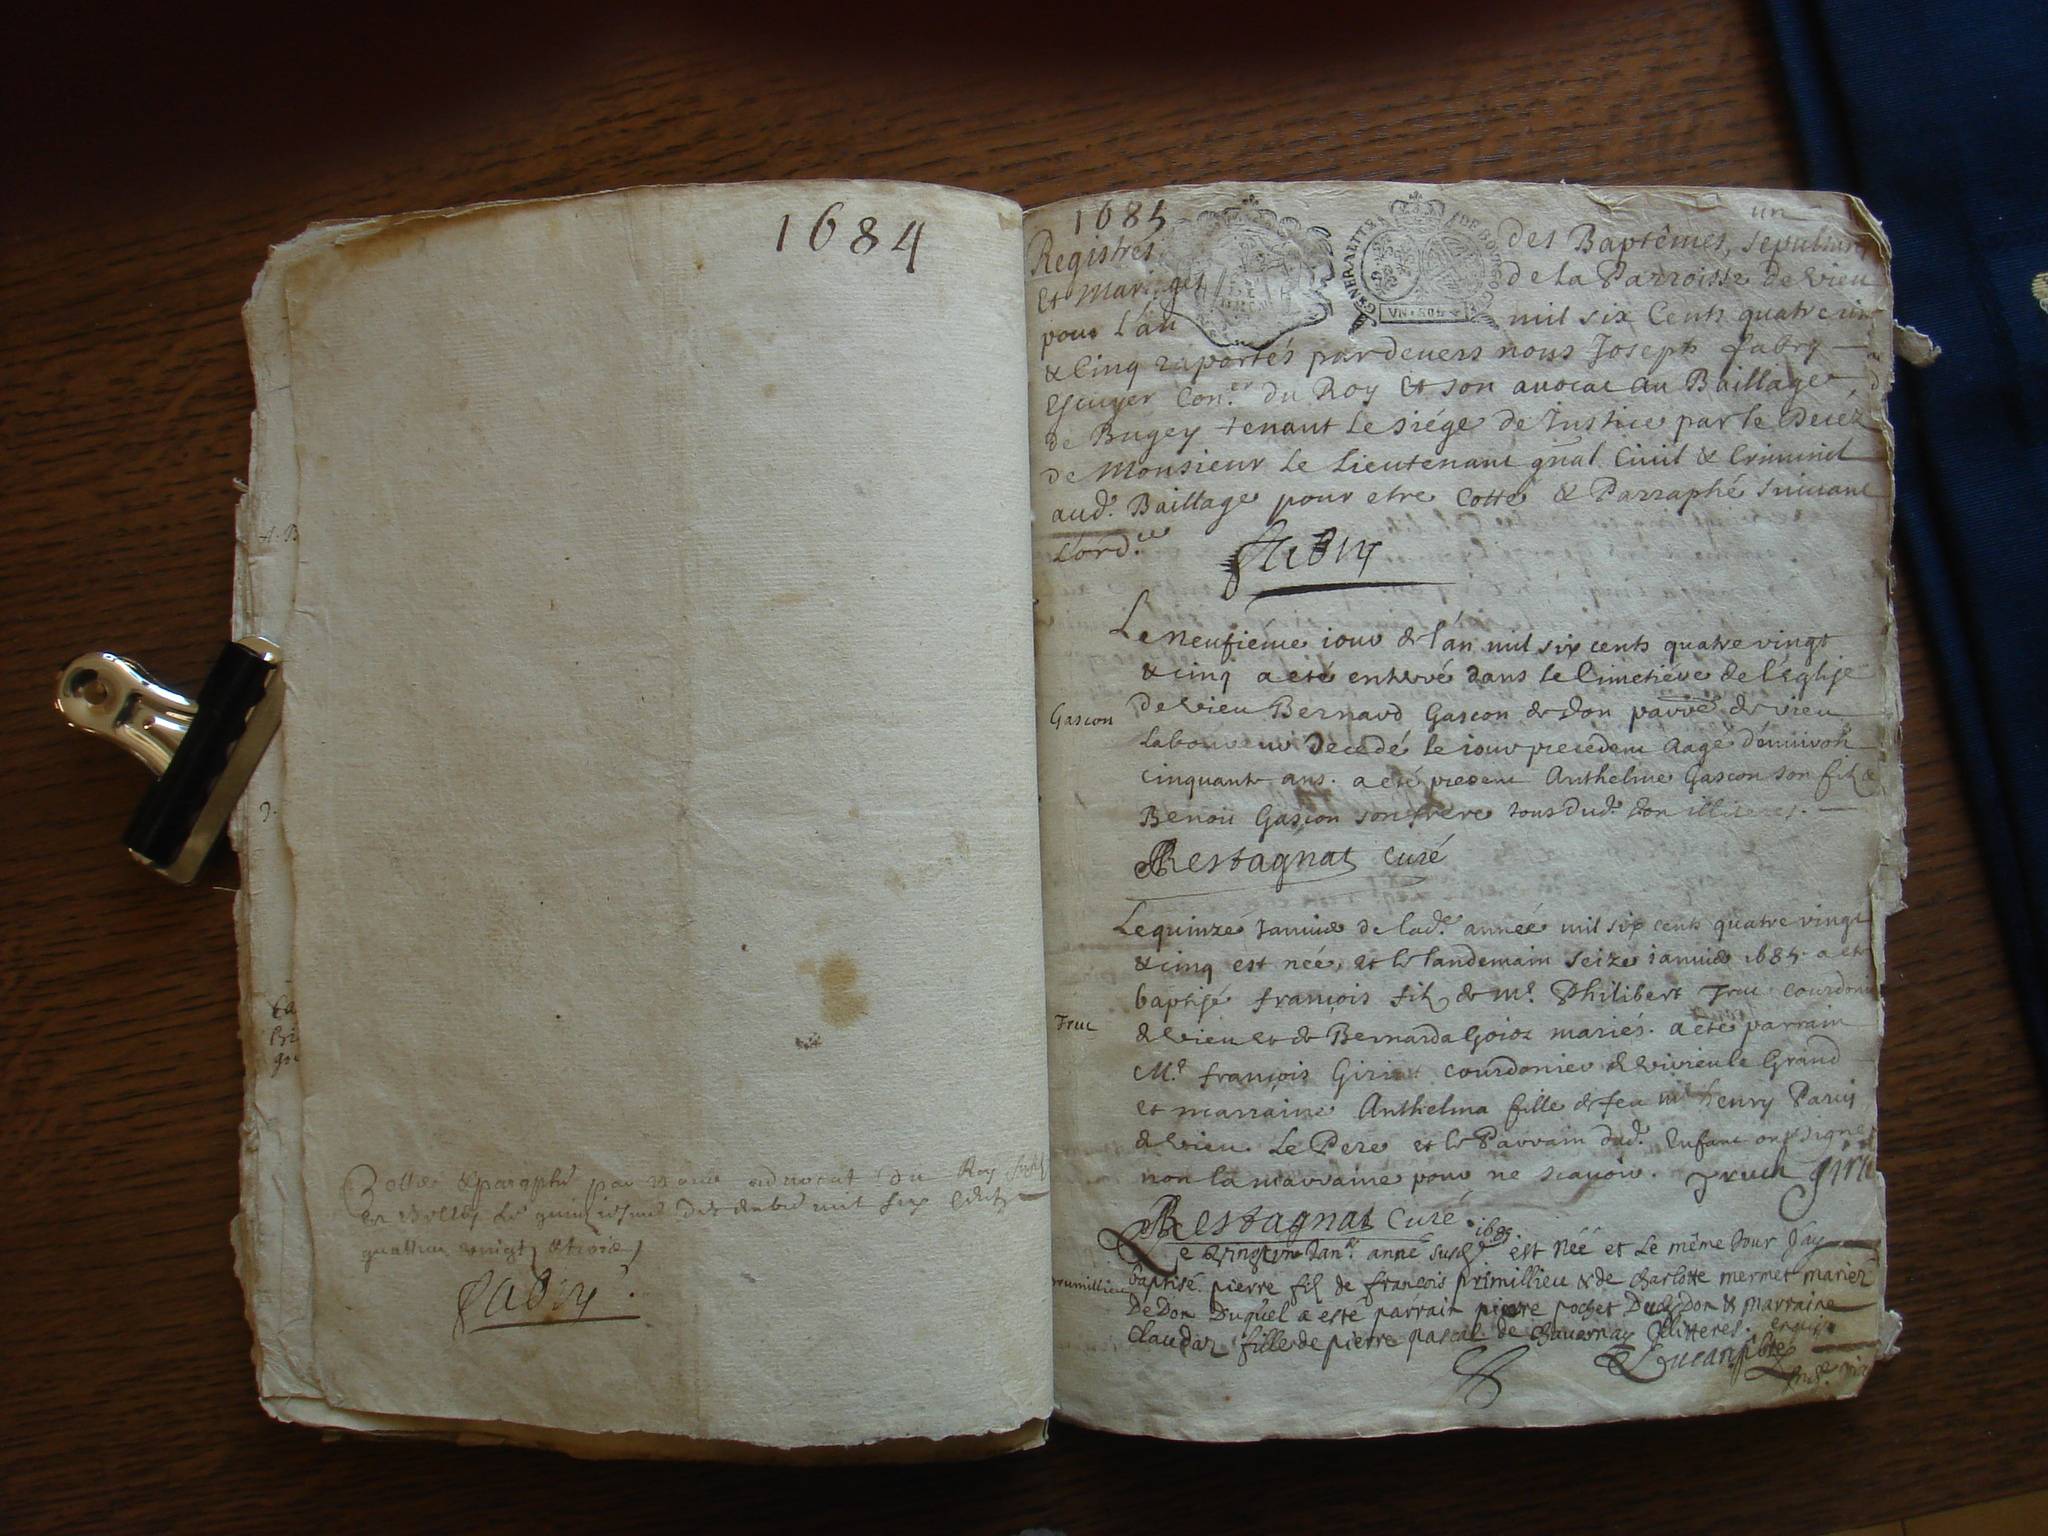 1684
Cottée & paraphé par nous advocat du Roy
en Belley le quinziesme decembre mil six cents
quattre vingt & trois
Fabry
1685
un
Registres des Baptêmes, sepultures
Et Mariages de la Parroisse de vieu
pour l'an mil six Cents quatre vin
& Cinq raportés pardevers nous Joseph fabry
Escuyer Con.er du Roy Et son avocat au Baillage
de Bugey tenant le siége de Justice par le Decéz
de Monsieur le Lieutenant gnal Civil & Criminel
aud.t Baillage pour etre Cotté & Parraphé suivant
L'ord.ce
Fabry
GENERALITE DE BOURGOGNE
VN SOL
Le neufiéme iour de l'an mil six cents quatre vingt
& cinq a eté enterré dans le Cimetiére de l'Eglise
Gascon
de vieu Bernard Gascon de don parr.e de vieu
laboureur decedé le iour precedent aagé d'enuiron
cinquante ans. a eté present Anthelme Gascon son fil &
Benoit Gascon son frere tous dud. don illiteres.
Restagnat curé
Le quinzé Januie de lad.e année mil six cents quatre vingt
& cinq est née, et le landemain seize ianuie 1685 a ete
baptisé françois fil de m.e Philibert Truc courdonie
Truc
de vieu et de Bernarda Goioz mariés. a eté parrain
M.e françois Girin courdonier de virieu le Grand
et marraine Anthelma fille de feu m.e henry Parin
de vieu. Le Pere et le Parrain dud. Enfant ont signe
non la marraine pour ne scauoir. Truch Giri
Restagnat Curé
1685.
Le vingt un Jan.er anné susd.e est Néé et Le même Jour J'ay
primillieu
baptisé pierre fil de françois primillieu & de charlotte mermet mariez
De Don Duquel a esté parrain pierre pochet Dud. Don & marraine
Claudaz fille de pierre pascal de chavornay illitteres. enquis